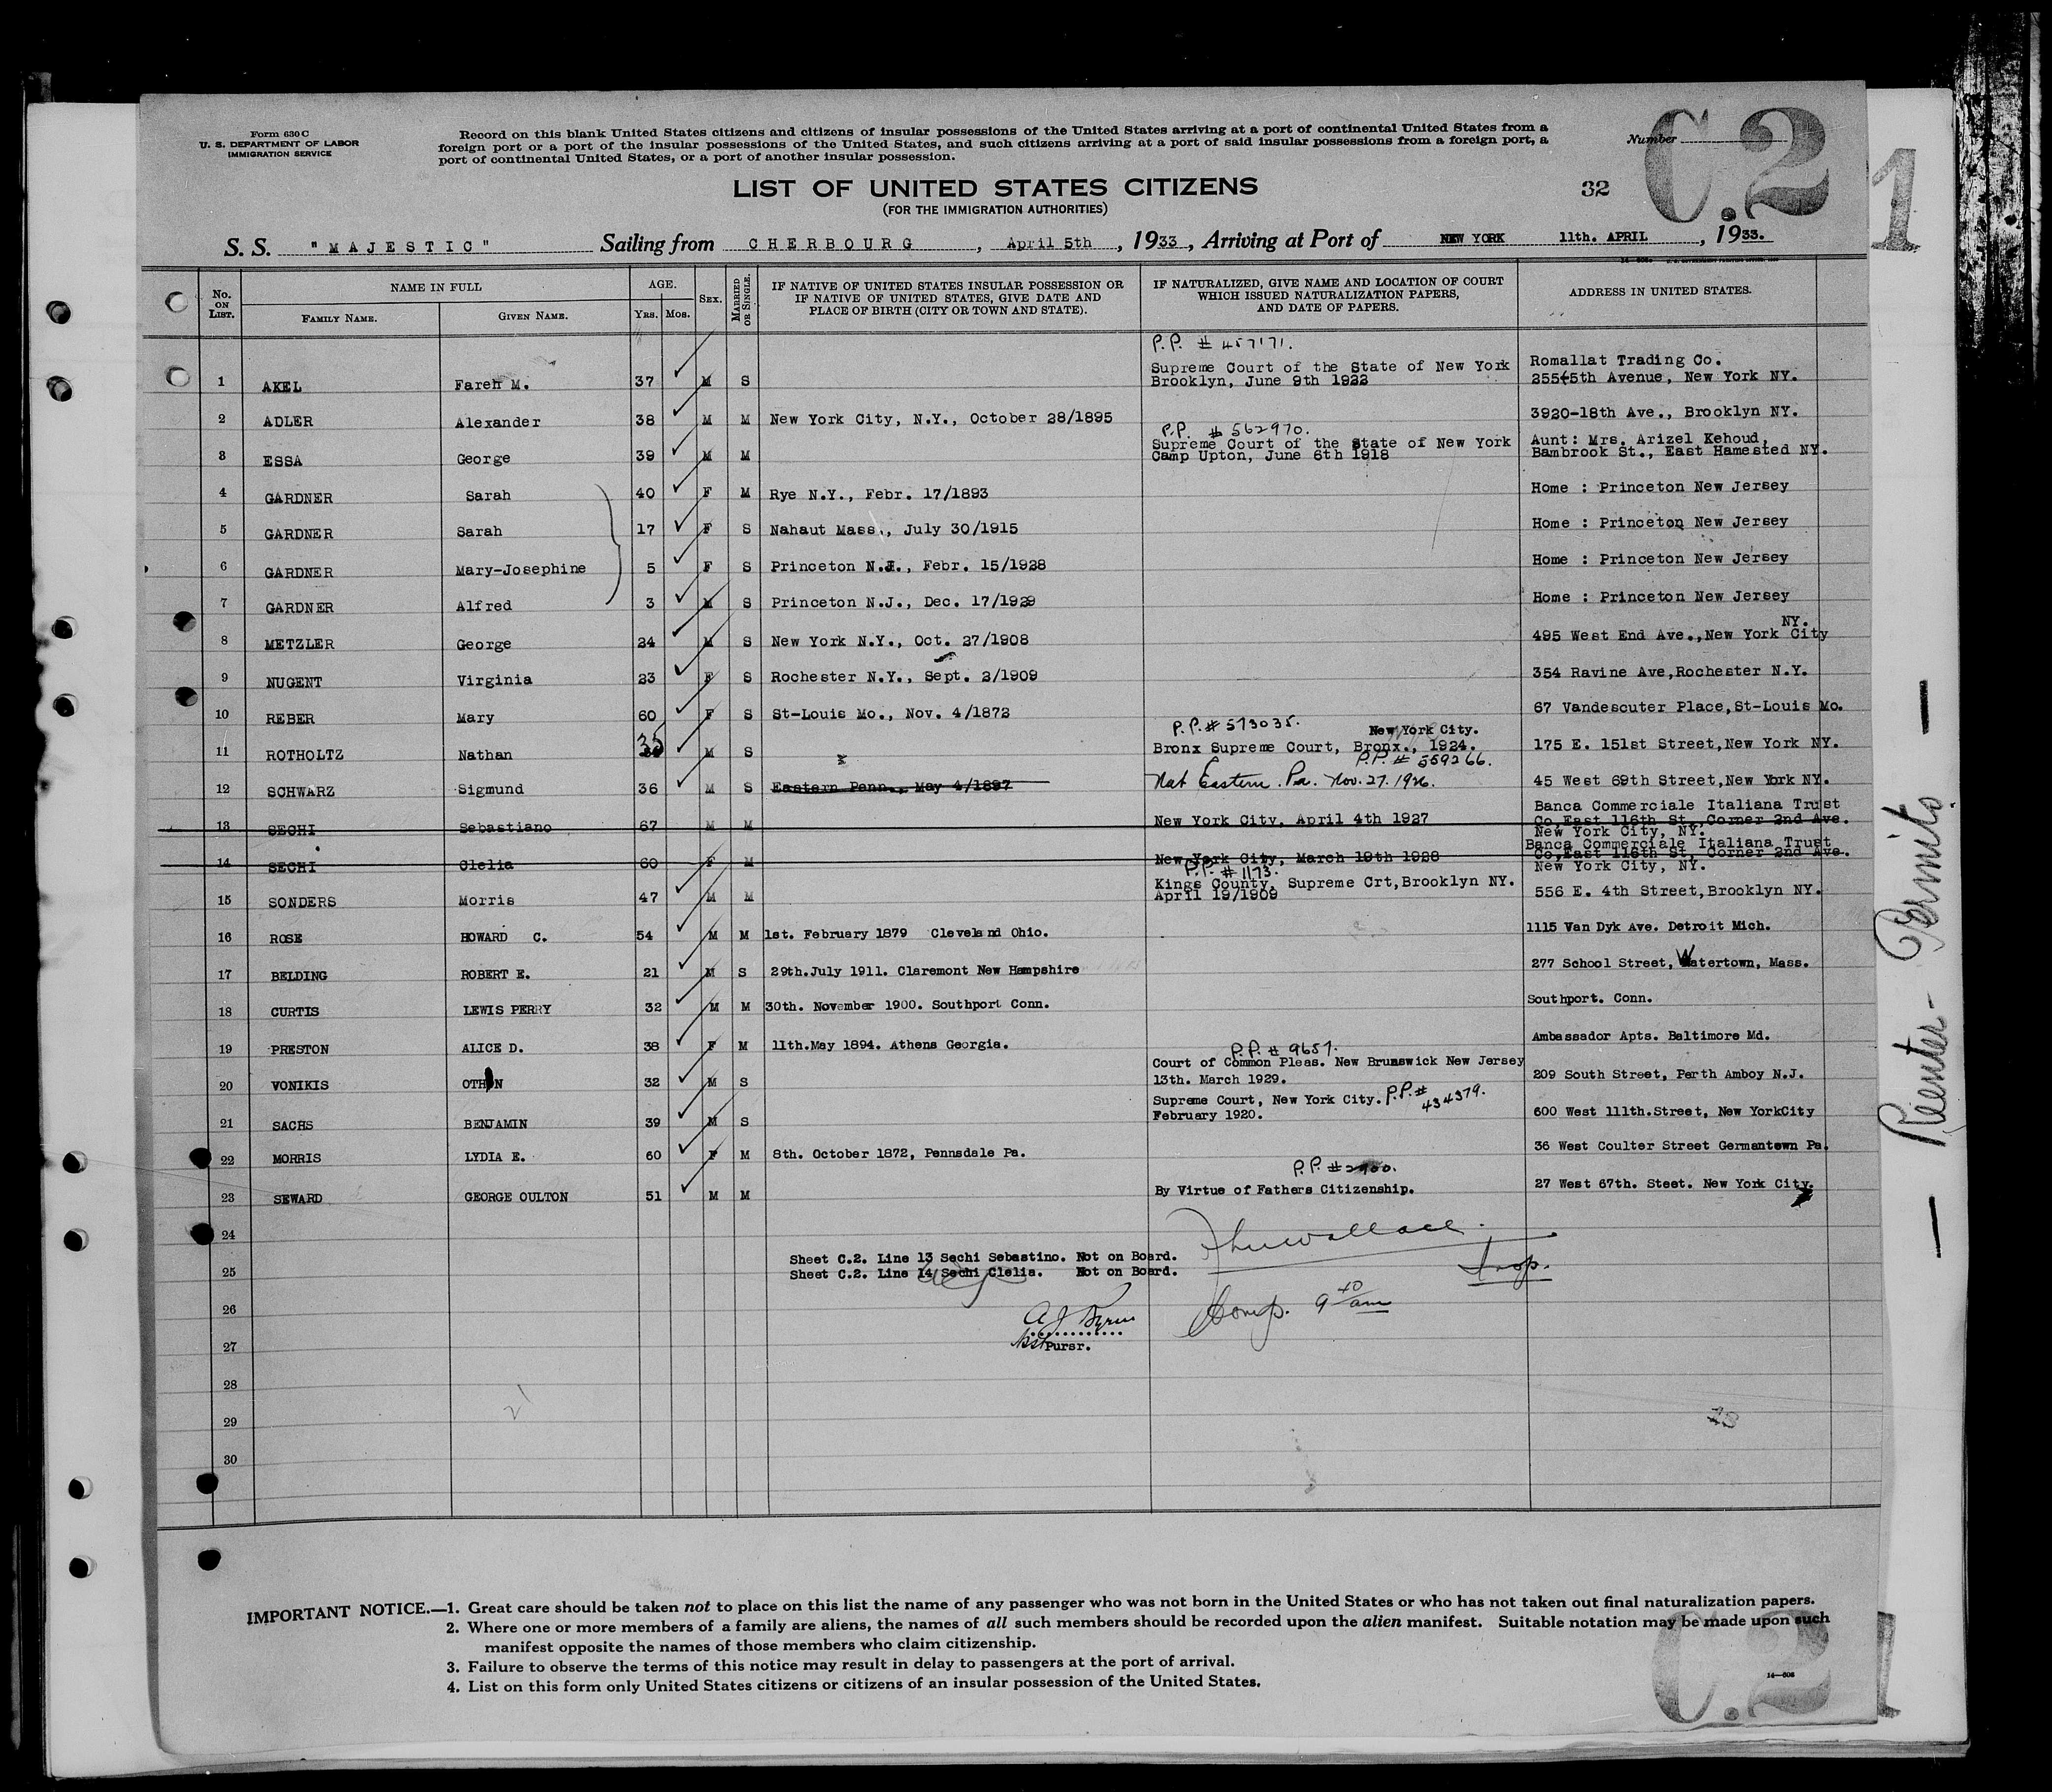 Form 630 C
U. S. DEPARTMENT OF LABOR
IMMIGRATION SERVICE
Record on this blank United States citizens and citizens of insular possessions of the United States arriving at a port of continental United States from a
foreign port or a port of the insular possessions of the United States, and such citizens arriving at a port of said insular possessions from a foreign port, a
port of continental United States, or a port of another insular possession.
Number
C.2
1
LIST OF UNITED STATES CITIZENS
32
(FOR THE IMMIGRATION AUTHORITIES)
S. S. "MAJESTIC" Sailing from CHERBOURG, April 5th, 1933, Arriving at Port of NEW YORK 11th. APRIL, 1933.
No. ON LIST. NAME IN FULL FAMILY NAME. GIVEN NAME. AGE. YRS. MOS. SEX. MARRIED OR SINGLE. IF NATIVE OF UNITED STATES INSULAR POSSESSION OR IF NATIVE OF UNITED STATES, GIVE DATE AND PLACE OF BIRTH (CITY OR TOWN AND STATE). IF NATURALIZED, GIVE NAME AND LOCATION OF COURT WHICH ISSUED NATURALIZATION PAPERS, AND DATE OF PAPERS. ADDRESS IN UNITED STATES.
P.P. # 457171.
1 AKEL Fareh M. 37 M S Supreme Court of the State of New York Brooklyn, June 9th 1922 Romallat Trading Co. 255-5th Avenue, New York NY.
2 ADLER Alexander 38 M M New York City, N.Y., October 28/1895 3920-18th Ave., Brooklyn NY.
P.P. # 562970.
3 ESSA George 39 M M Supreme Court of the State of New York Camp Upton, June 6th 1918 Aunt: Mrs. Arizel Kehoud, Bambrook St., East Hamested NY.
4 GARDNER Sarah 40 F M Rye N.Y., Febr. 17/1893 Home : Princeton New Jersey
5 GARDNER Sarah 17 F S Nahaut Mass., July 30/1915 Home : Princeton New Jersey
6 GARDNER Mary-Josephine 5 F S Princeton N.J., Febr. 15/1928 Home : Princeton New Jersey
7 GARDNER Alfred 3 M S Princeton N.J., Dec. 17/1929 Home : Princeton New Jersey
8 METZLER George 24 M S New York N.Y., Oct. 27/1908 495 West End Ave.,New York City NY.
9 NUGENT Virginia 23 F S Rochester N.Y., Sept. 2/1909 354 Ravine Ave,Rochester N.Y.
10 REBER Mary 60 F S St-Louis Mo., Nov. 4/1872 67 Vandescuter Place,St-Louis Mo.
P.P. # 573035. New York City.
11 ROTHOLTZ Nathan 35 M S Bronx Supreme Court, Bronx., 1924. 175 E. 151st Street,New York NY.
P.P. # 559266.
12 SCHWARZ Sigmund 36 M S Eastern Penn., May 4/1897 Nat Eastern. Pa. Nov. 27. 1926. 45 West 69th Street,New York NY.
13 SECHI Sebastiano 67 M M New York City, April 4th 1927 Banca Commerciale Italiana Trust Co,East 116th St.,Corner 2nd Ave. New York City, NY.
14 SECHI Clelia 60 F M New York City, March 19th 1928 Banca Commerciale Italiana Trust Co,East 116th St, Corner 2nd Ave. New York City, NY.
P.P. # 1173.
15 SONDERS Morris 47 M M Kings County, Supreme Crt,Brooklyn NY. April 19/1909 556 E. 4th Street,Brooklyn NY.
16 ROSE HOWARD C. 54 M M 1st. February 1879 Cleveland Ohio. 1115 Van Dyk Ave. Detroit Mich.
17 BELDING ROBERT E. 21 M S 29th.July 1911. Claremont New Hampshire 277 School Street, Watertown, Mass.
18 CURTIS LEWIS PERRY 32 M M 30th. November 1900. Southport Conn. Southport. Conn.
19 PRESTON ALICE D. 38 F M 11th.May 1894. Athens Georgia. Ambassador Apts. Baltimore Md.
P.P. # 9657.
20 VONIKIS OTHON 32 M S Court of Common Pleas. New Brunswick New Jersey 13th. March 1929. 209 South Street, Perth Amboy N.J.
21 SACHS BENJAMIN 39 M S Supreme Court, New York City. February 1920. P.P. # 434379. 600 West 111th.Street, New YorkCity
22 MORRIS LYDIA E. 60 F M 8th. October 1872, Pennsdale Pa. 36 West Coulter Street Germantown Pa.
P.P. # 2900.
23 SEWARD GEORGE OULTON 51 M M By Virtue of Fathers Citizenship. 27 West 67th. Steet. New York City.
24
Sheet C.2. Line 13 Sechi Sebastino. Not on Board.
25 Sheet C.2. Line 14 Sechi Clelia. Not on Board.
Wallace
Insp.
26
Comp. 9 40 am
A J Byrne
27 Asst Pursr.
28
29
30
Reenter - Permits
IMPORTANT NOTICE.—1. Great care should be taken not to place on this list the name of any passenger who was not born in the United States or who has not taken out final naturalization papers.
2. Where one or more members of a family are aliens, the names of all such members should be recorded upon the alien manifest. Suitable notation may be made upon such
manifest opposite the names of those members who claim citizenship.
3. Failure to observe the terms of this notice may result in delay to passengers at the port of arrival.
4. List on this form only United States citizens or citizens of an insular possession of the United States.
14—608
C.2
1